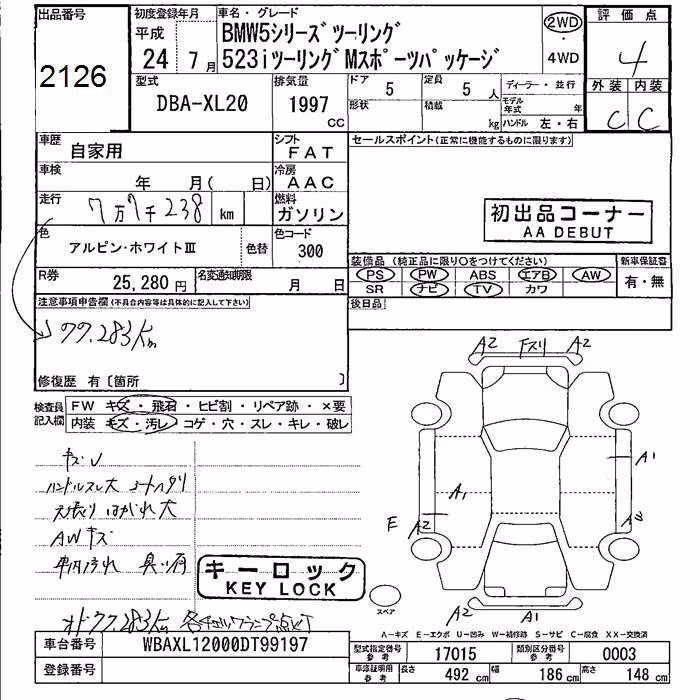 出品番号
2126
初度登録年月
平成
24年 7月
車名・グレード
BMW5シリーズツーリング
523iツーリングMスポーツパッケージ
2WD
4WD
評価点
4
外装 内装
C C
型式
DBA-XL20
排気量
1997
CC
ドア 5
形状
定員 5人
積載 kg
ディーラー・並行
モデル年式 年
ハンドル 左・右
車歴
自家用
シフト
FAT
セールスポイント(正常に機能するものに限ります)
車検
年 月( 日)
冷房
AAC
走行
7万7千238 km
燃料
ガソリン
初出品コーナー
AA DEBUT
色
アルピン・ホワイトⅢ
色替
色コード
300
装備品(純正品に限り○をつけてください)
新車保証書
PS PW ABS エアB AW
SR ナビ TV カワ
有・無
R券
25,280円
名変通知期限
月 日
後日品
注意事項申告欄(不具合内容等は具体的に記入して下さい)
77.283km
修復歴 有〔箇所 〕
検査員記入欄
FW キズ・飛石・ヒビ割・リペア跡・×要
内装 キズ・汚し・コゲ・穴・スレ・キレ・破レ
A2 Fスリ A2
A1
A1
E A2
A2 A1
キズU
ハンドルスレ大 シートヘタリ
天張りはがれ大
AWキズ
車内汚れ 臭い有
キーロック
KEY LOCK
スペア
オド77.283km
A-キズ E-エクボ U-凹み W-補修跡 S-サビ C-腐食 XX-交換済
車台番号
WBAXL12000DT99197
型式指定番号参考
17015
類別区分番号参考
0003
登録番号
車庫証明用参考
長さ 492cm 幅 186cm 高さ 148cm